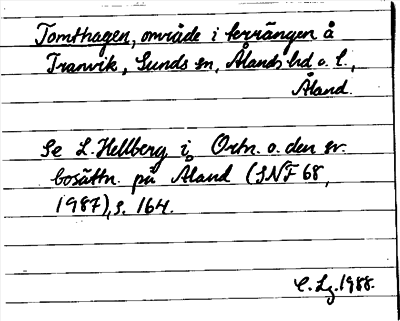 Tomthagen, område i terrängen å
Tranvik, Sunds sn, Ålands hd o. l.,
Åland.
Se L. Hellberg i Ortn. o. den sv.
bosättn. på Åland (SNF 68,
1987), s. 164.
C. Lg. 1988.